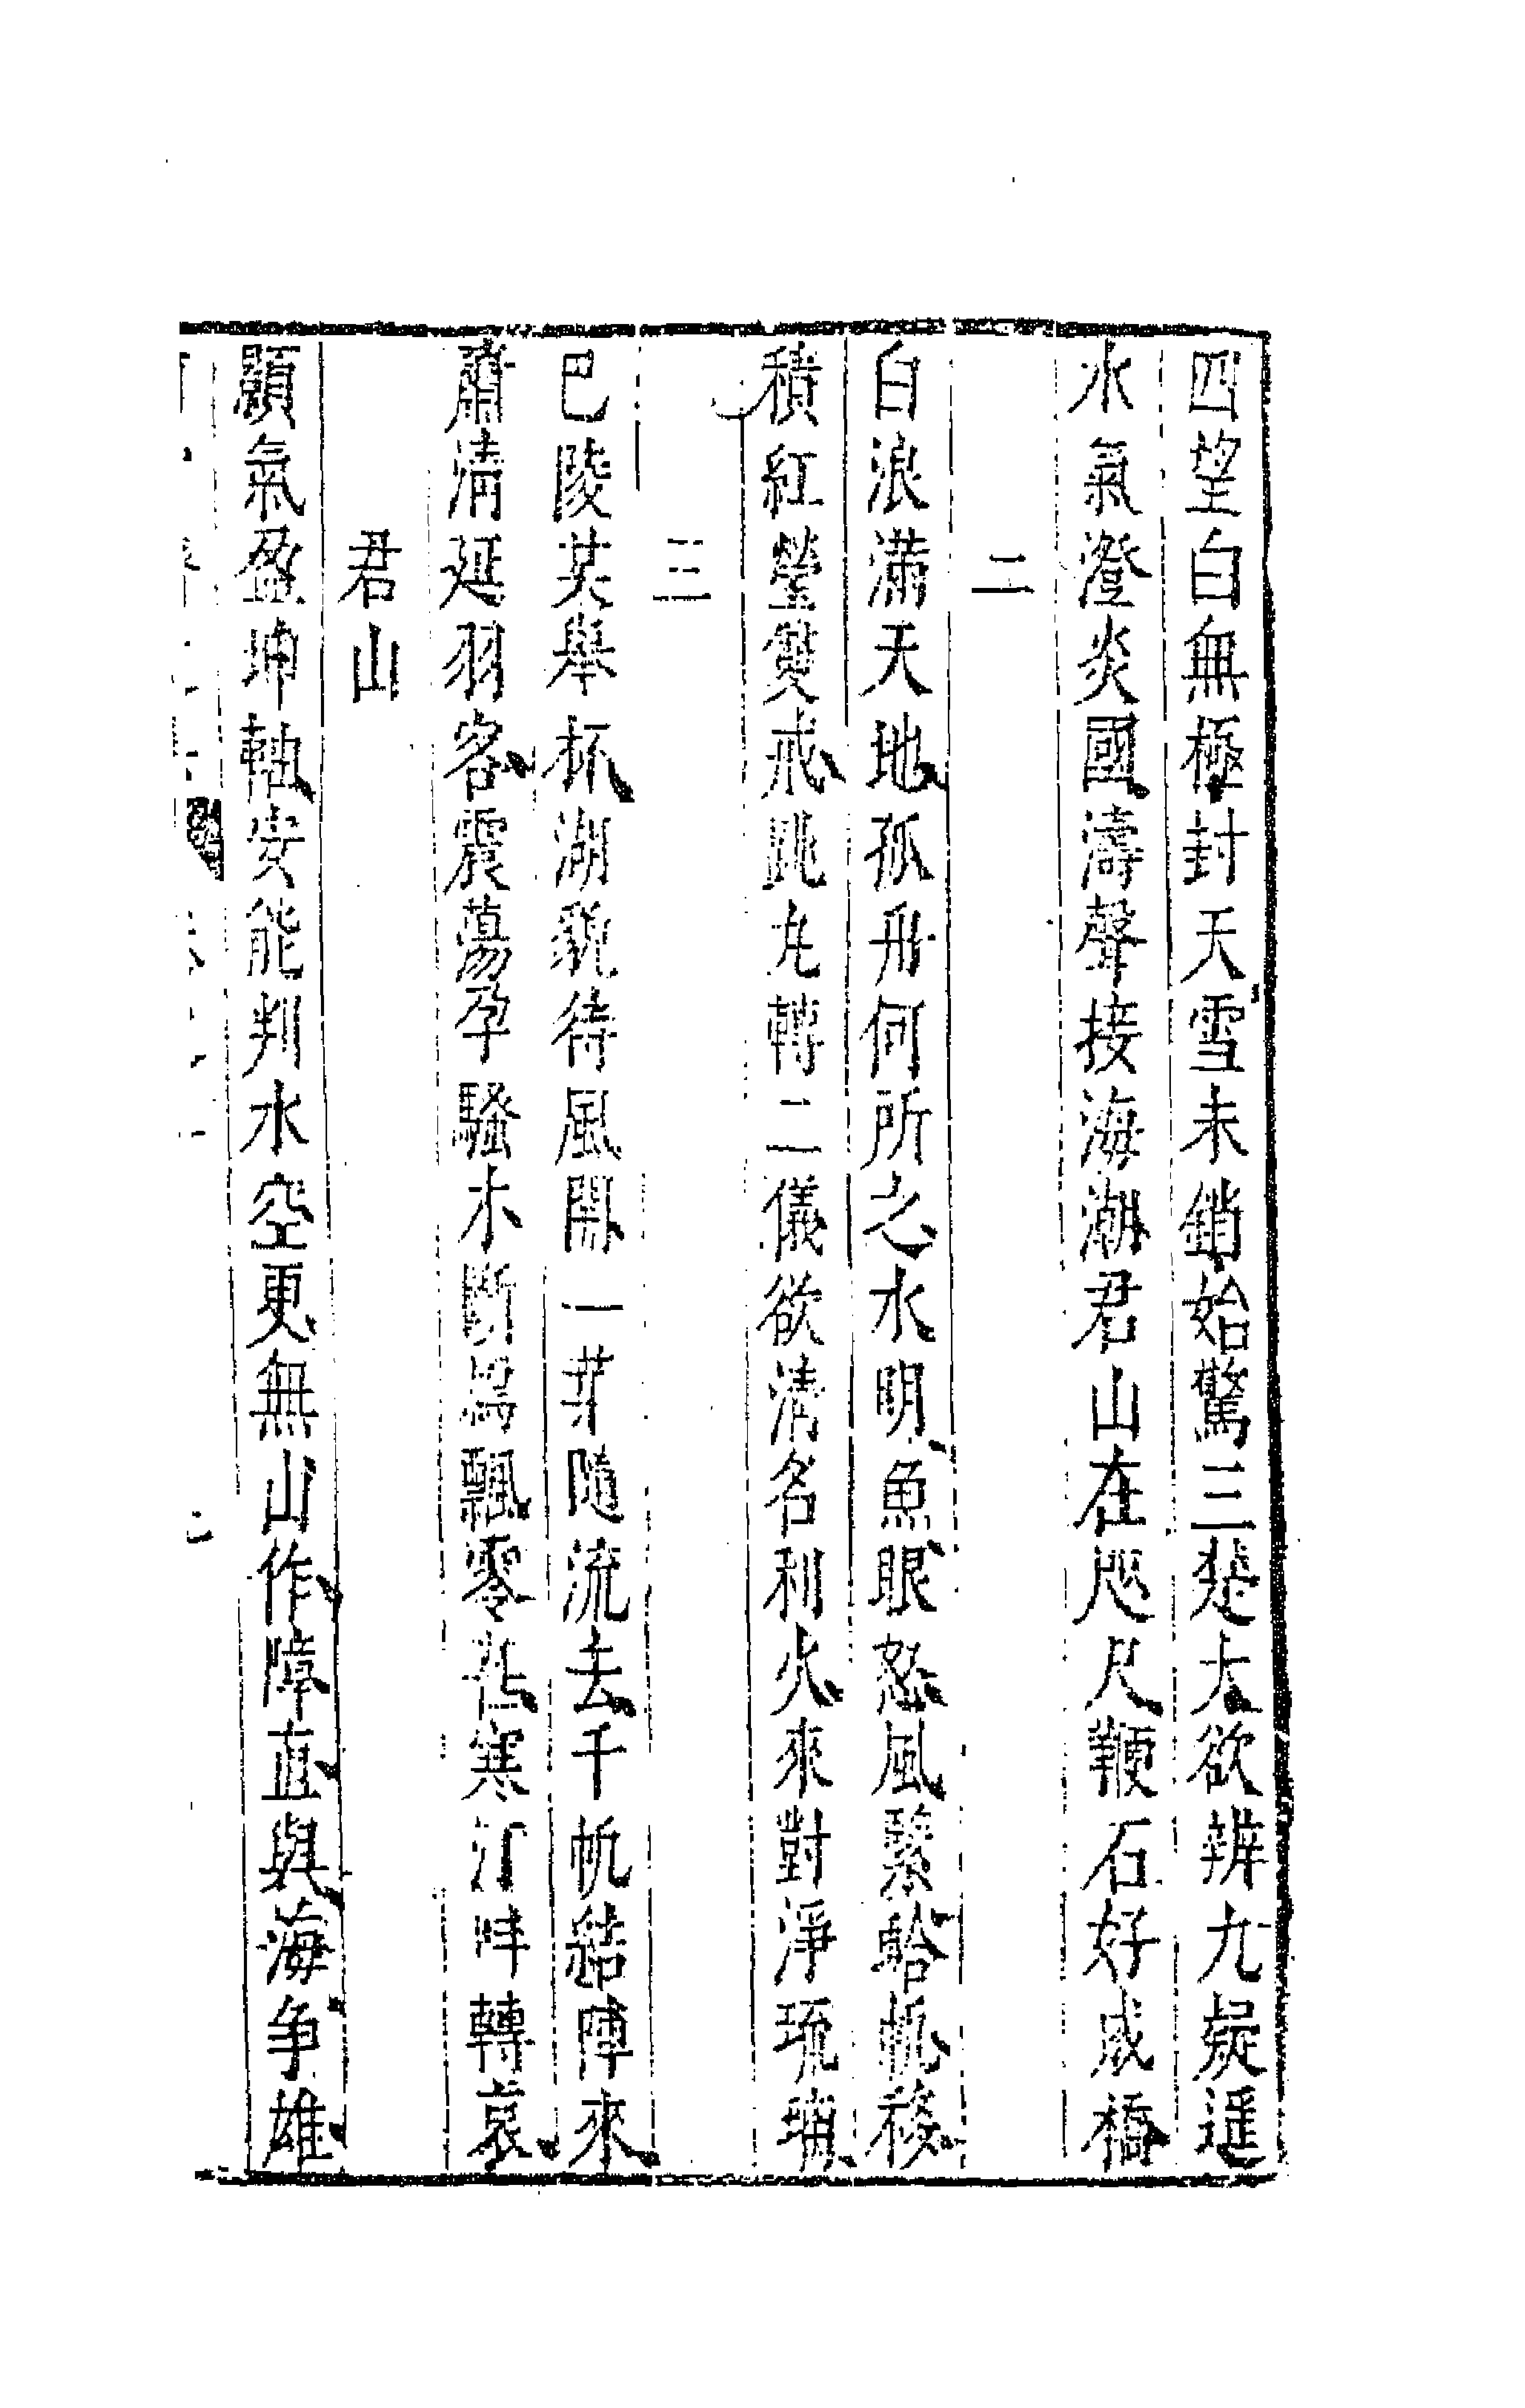 四望白無極封天雪未銷始驚三楚大欲辨九疑遥
水氣澄炎國濤聲接海潮君山在咫尺鞭石好成橋
二
白浪滿天地孤舟何所之水明魚眼怒風緊蛤帆移
積紅瑩雙戒跳丸轉二儀欲清名利火來對淨琉璃
三
巴陵共舉杯湖貌待風開一葉隨流去千帆結陣來
肅清延羽客震蕩孕騷才斷雁飄零荻寒江時轉哀
君山
顥氣盈坤軸安能判水空更無山作障直與海争雄